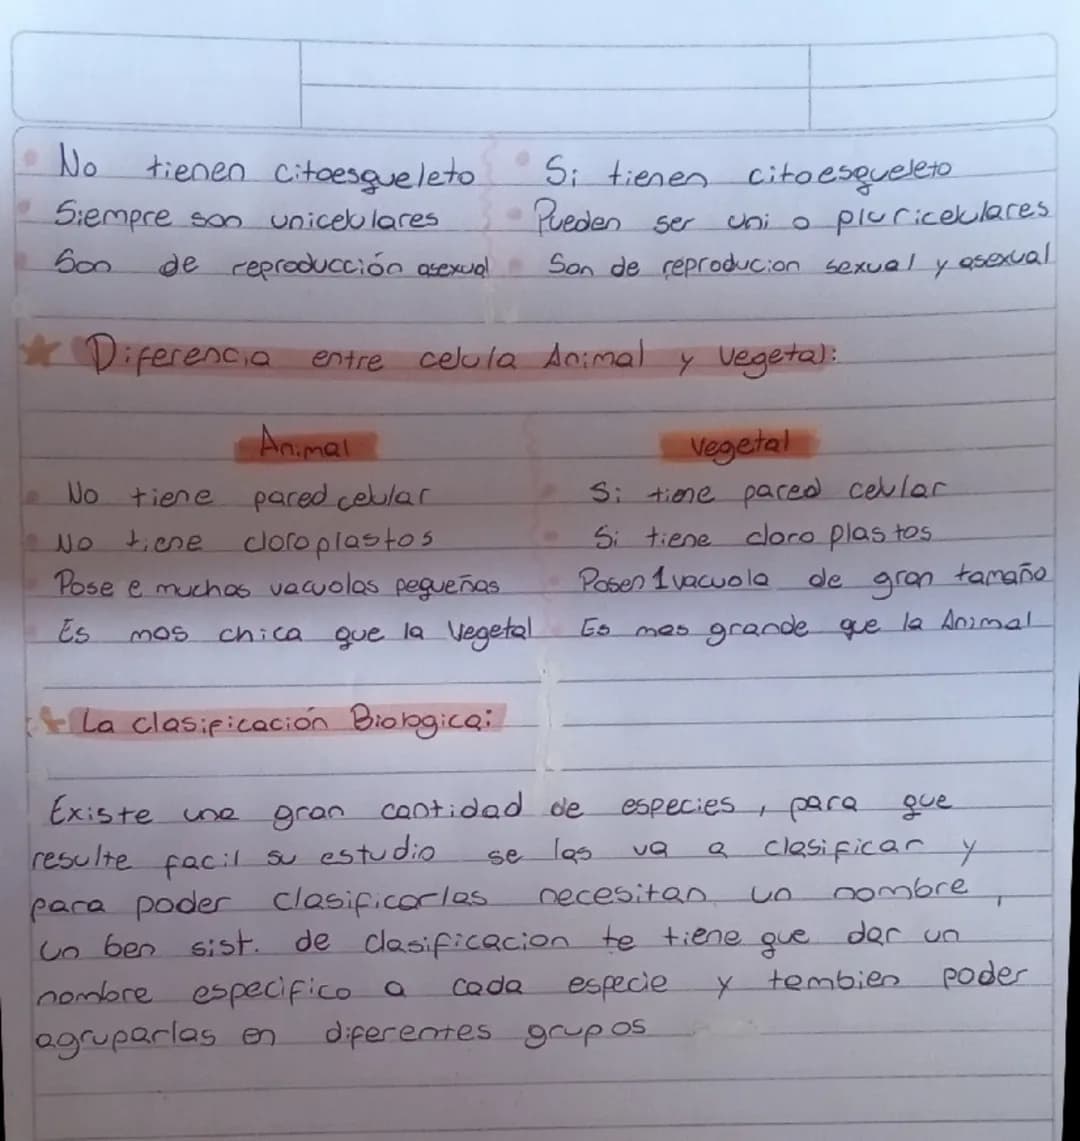 No tienen citoesqueleto
Si tienen citoesqueleto
Siempre son unicelulares
Pueden ser uni o pluricelulares
Son de reproducción asexual
Son de reproducion sexual y asexual
Diferencia entre celula Animal y Vegetal:
Animal
Vegetal
No tiene pared celular
Si tiene pared celular
No tiene cloroplastos
Si tiene cloro plastos
Pose e muchas vacuolas pequeñas
Posen 1 vacuola de gran tamaño
Es mas chica que la Vegetal
Es mas grande que la Animal
La clasificación Biologica:
Existe una gran cantidad de especies, para que
resulte facil su estudio se las va a clasificar y
para poder clasificarlas necesitan un nombre,
un ben sist. de clasificacion te tiene que dar un
nombre especifico a cada especie y tembien poder
agruparlas en diferentes grupos